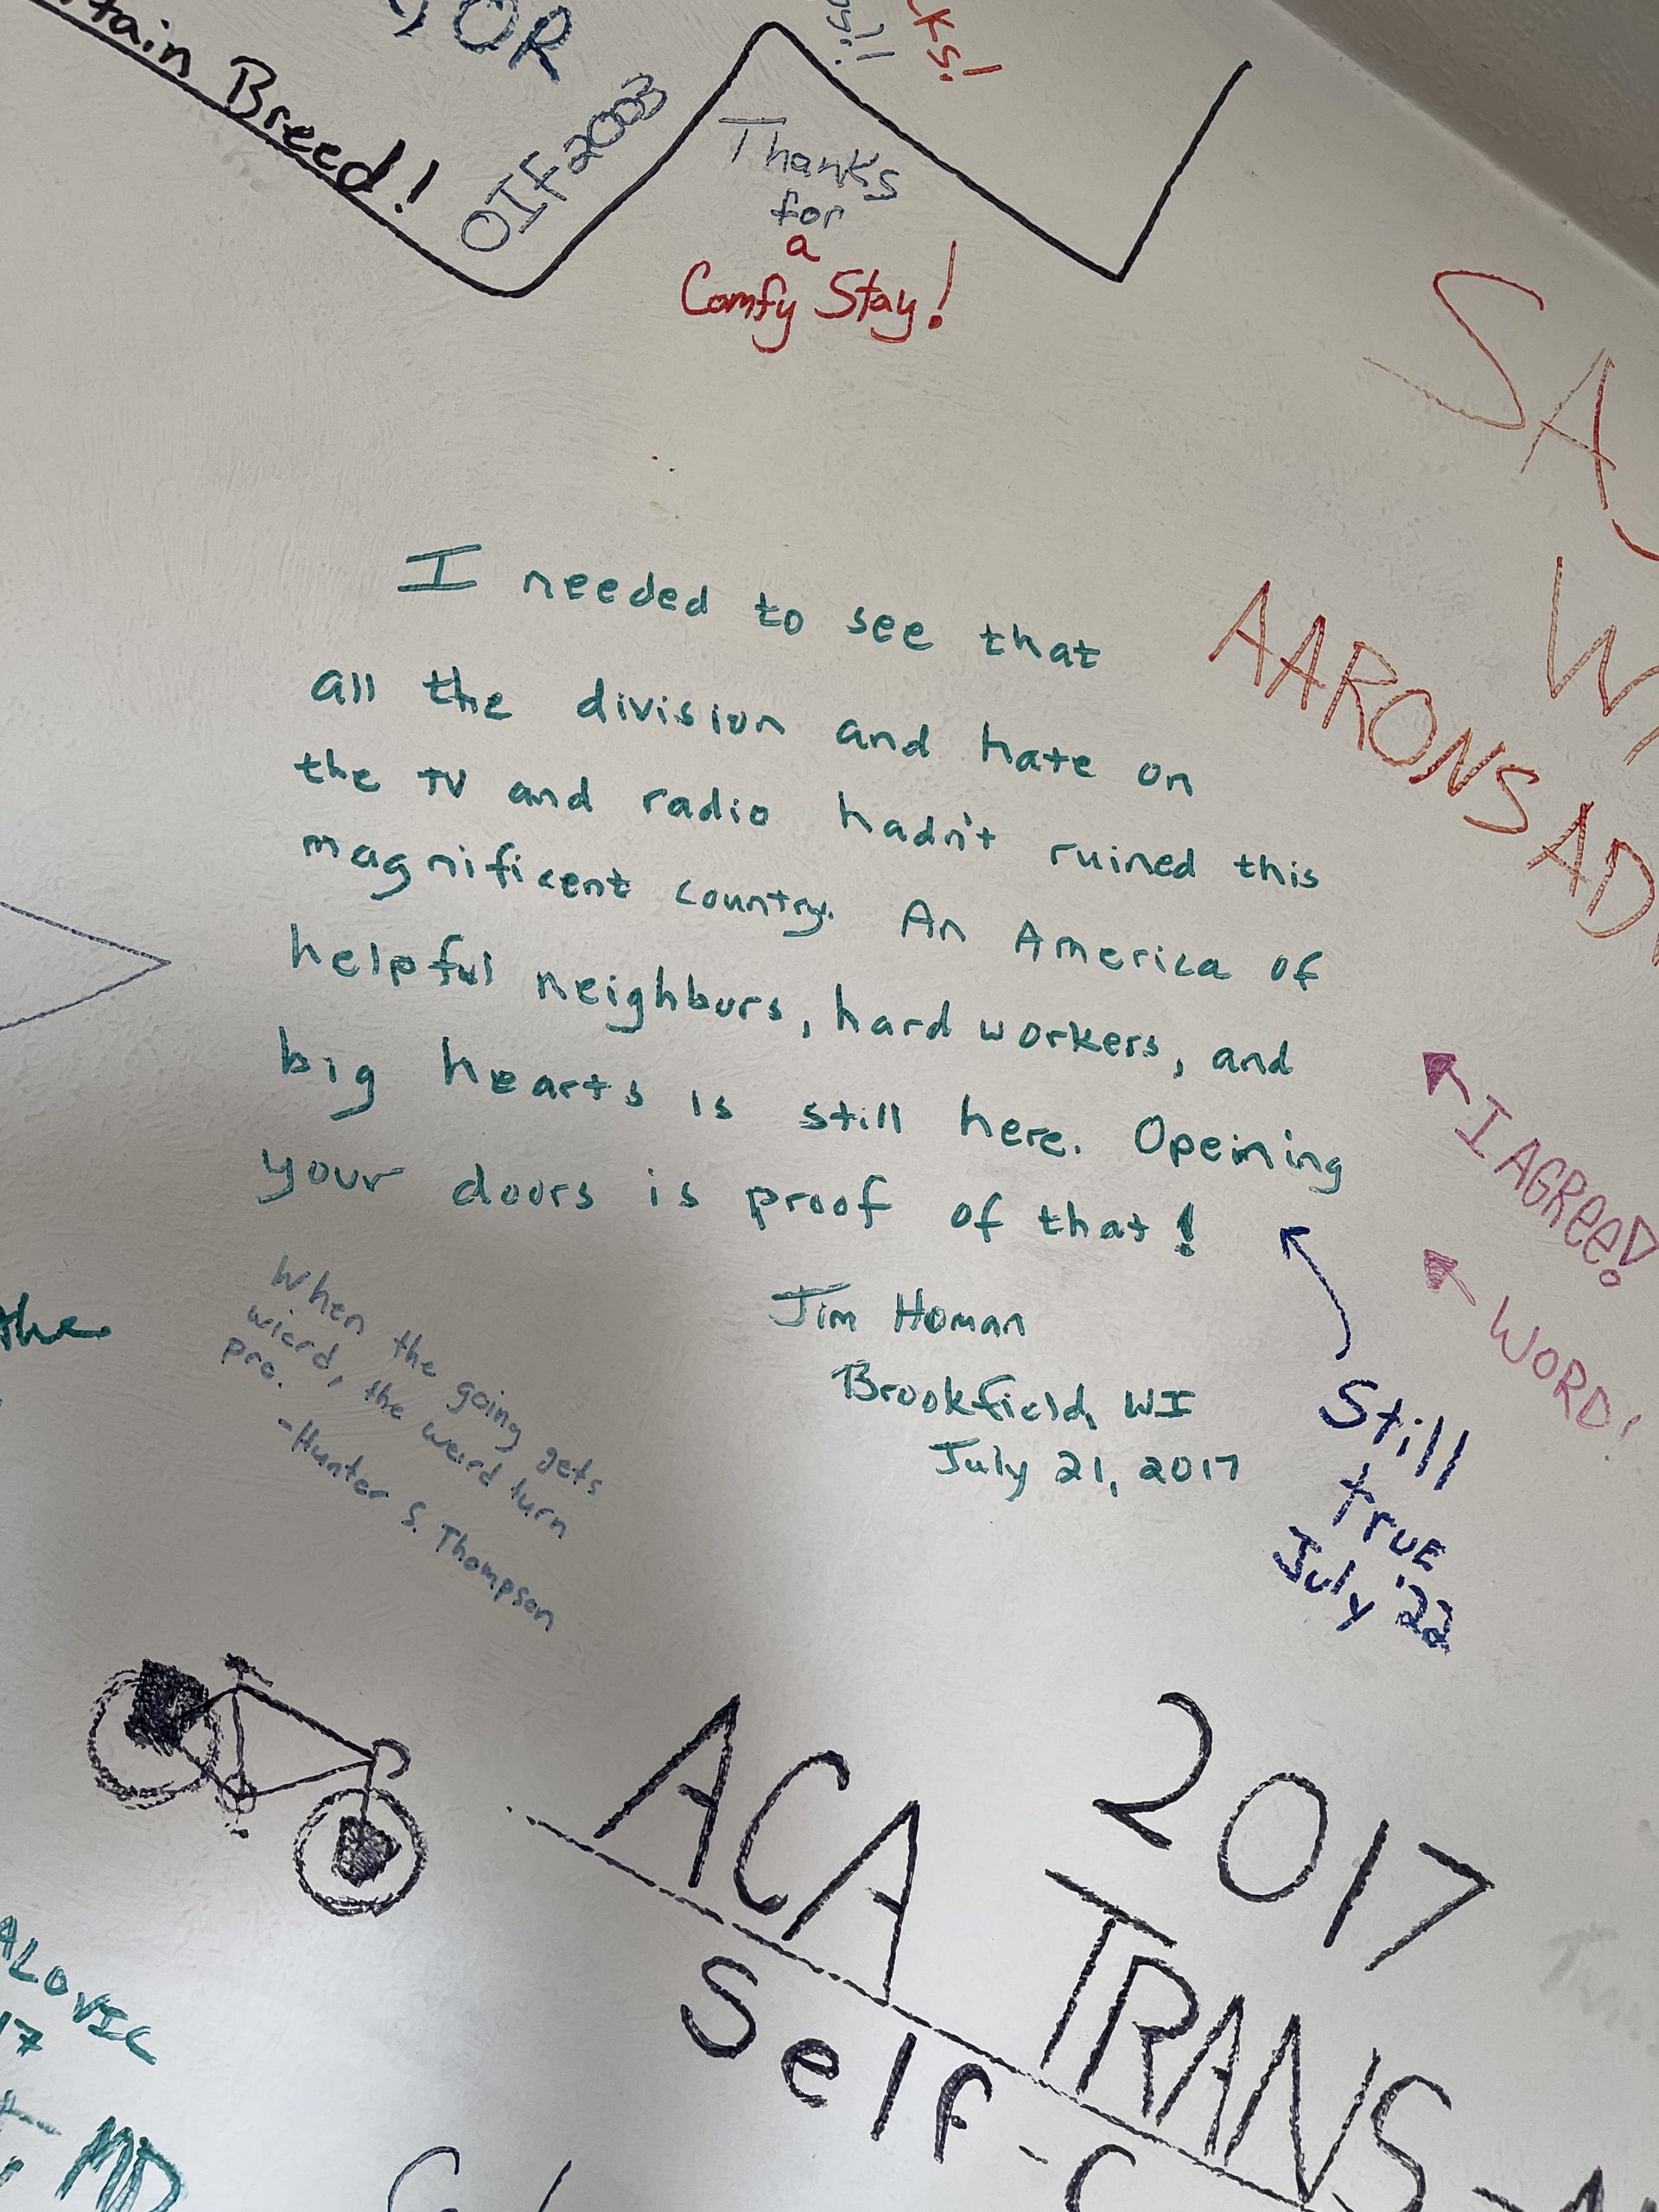 Breed!
OR
OIF 2003
Thanks
for
a
Comfy Stay!
I needed to see that
all the division and hate on
the TV and radio hadn't ruined this
magnificent country. An America of
helpful neighburs, hard workers, and
big hearts is still here. Opening
your doors is proof of that!
Jim Homan
Brookfield, WI
July 21, 2017
I AGREE!
WORD!
Still
true
July '22
When the going gets
wierd, the weird turn
pro.
-Hunter S. Thompson
AARONS AD
the
2017
ACA TRANS-
Self-C
MD